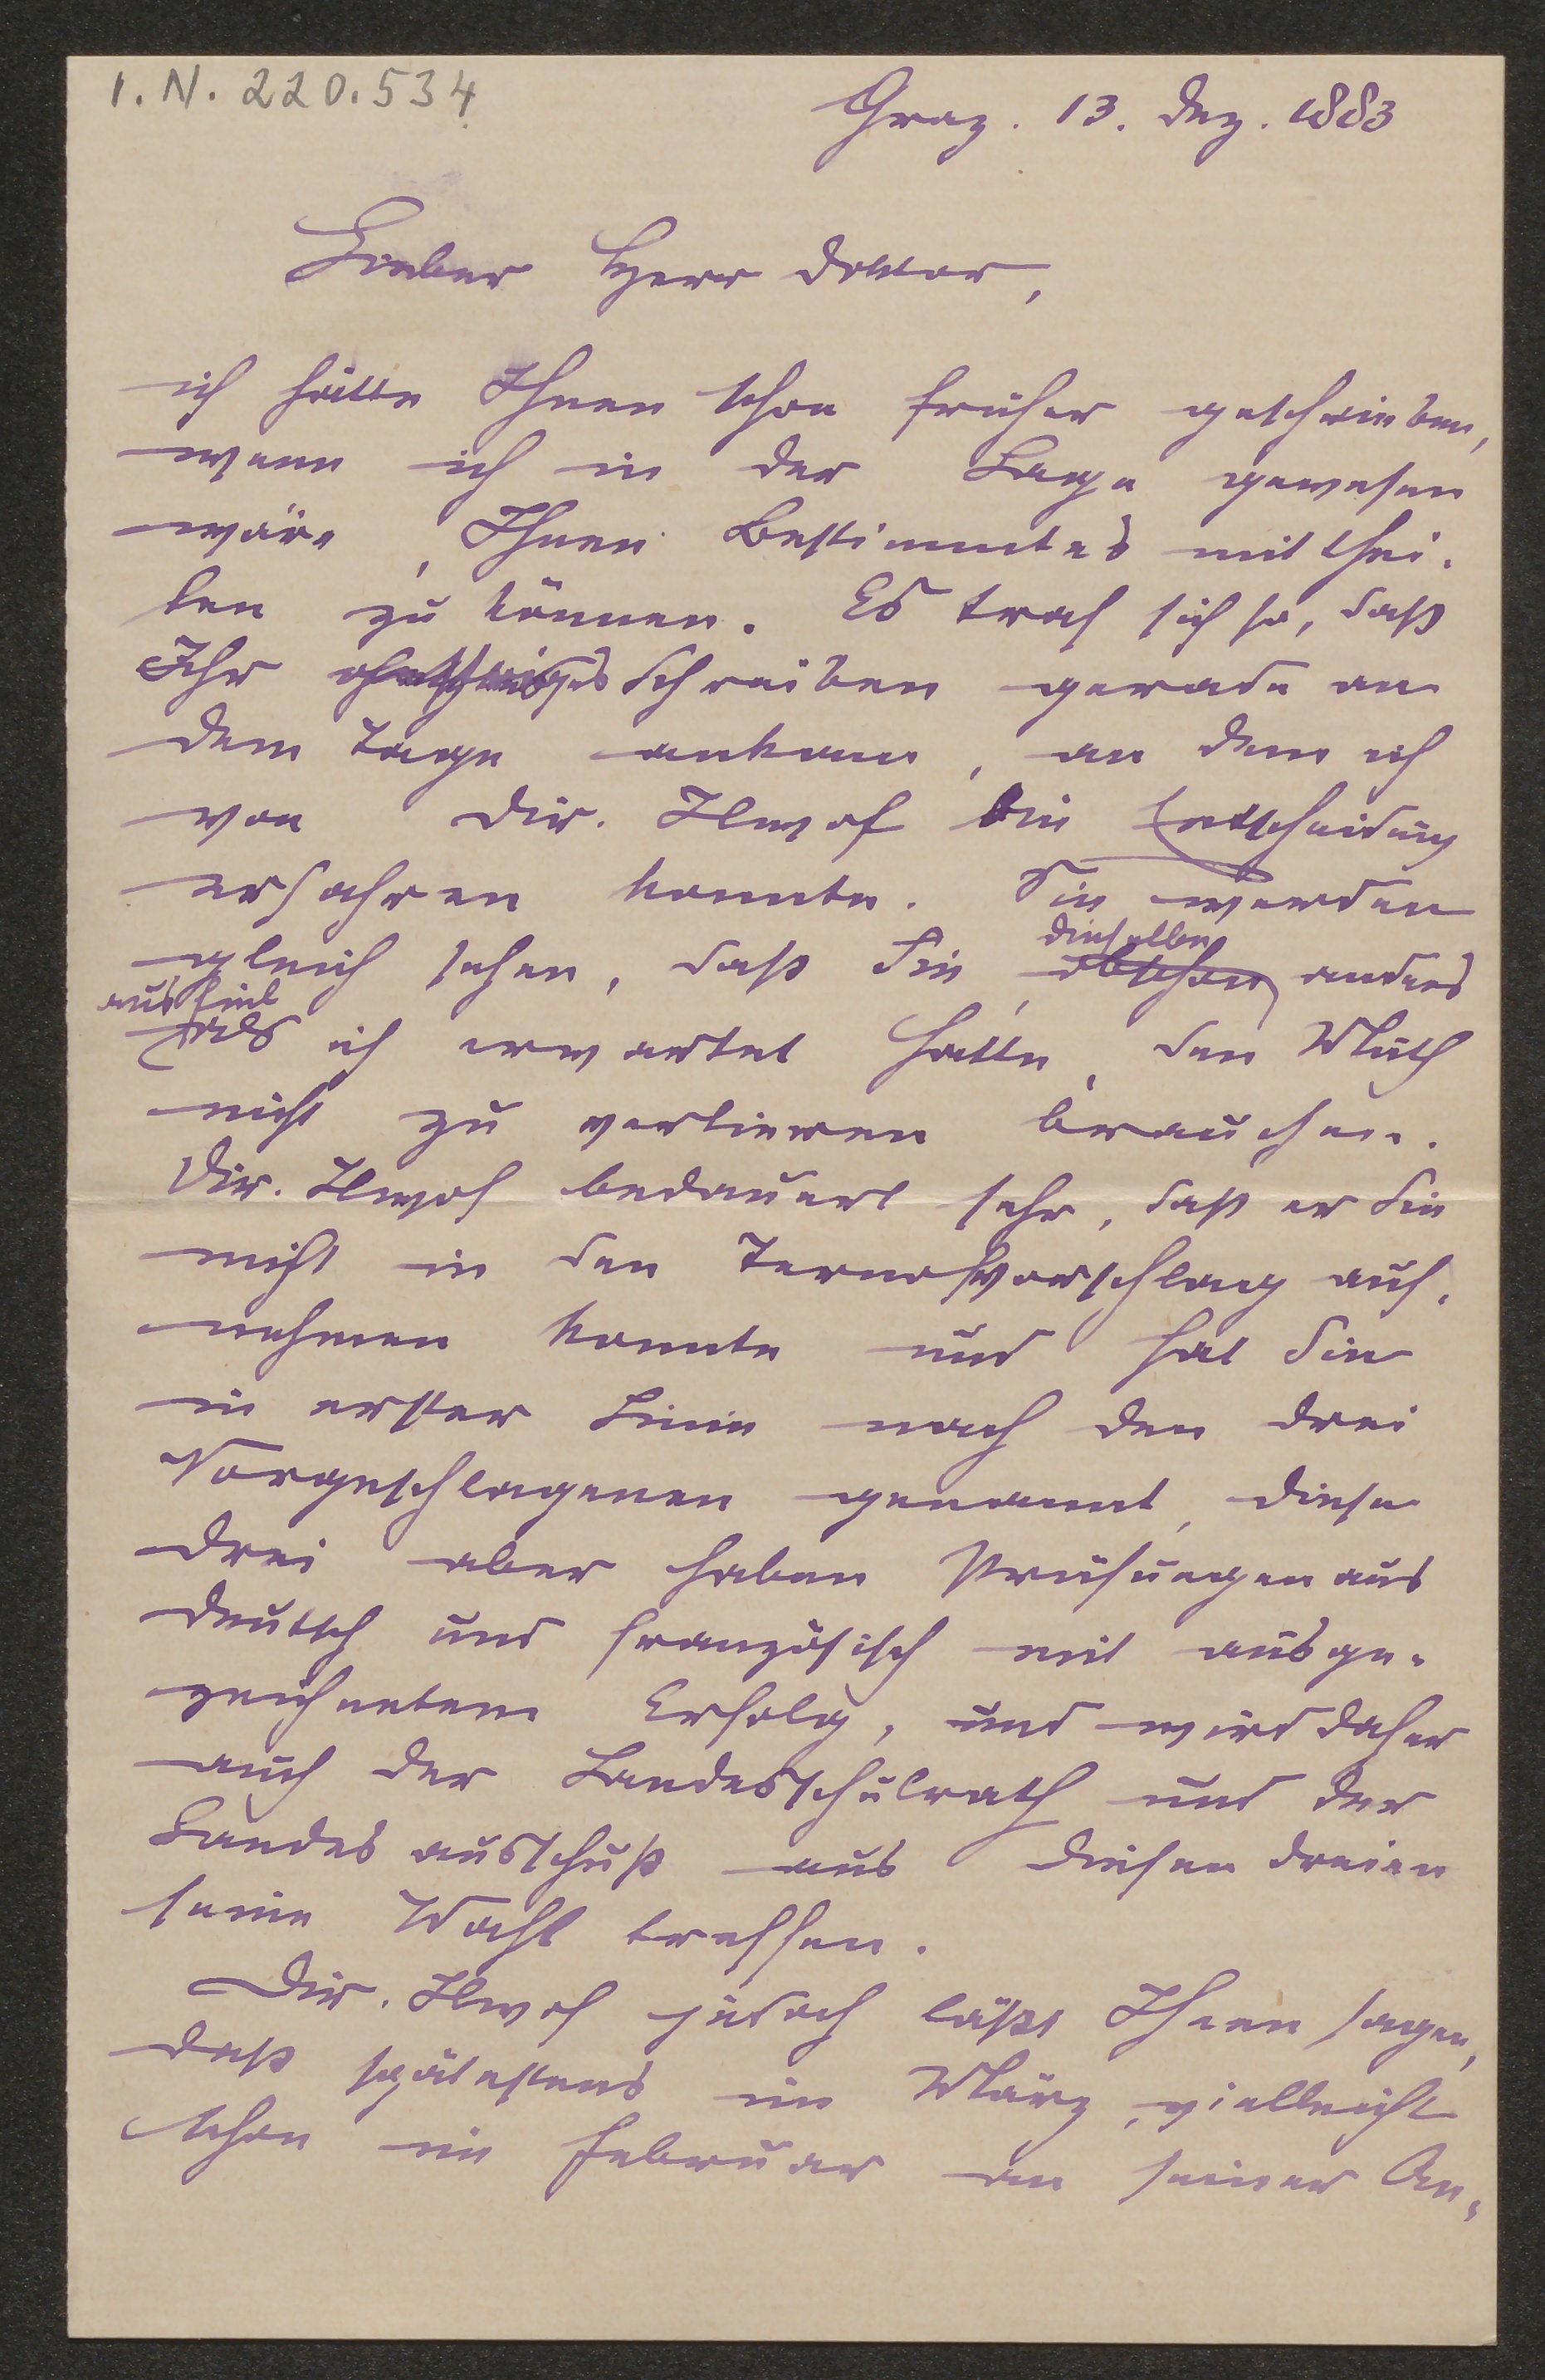 I. N. 220.534
Graz. 13. Dez. 1883
Lieber Herr Doktor,
ich hätte Ihnen schon früher geschrieben,
wenn ich in der Lage gewesen
wäre, Ihnen Bestimmtes mitthei-
len zu können. Es traf sich so, daß
Ihr Schreiben gerade an
dem Tage ankam, an dem ich
von Dir. Ilwof die Entscheidung
erfahren konnte. Sie werden
gleich sehen, daß Sie, obschon dieselbe anders
ausfiel als ich erwartet hatte, den Muth
nicht zu verlieren brauchen.
Dir. Ilwof bedauert sehr, daß er Sie
nicht in den Ternovorschlag auf-
nehmen konnte und hat Sie
in erster Linie nach den drei
Vorgeschlagenen genannt, diese
drei aber haben Prüfungen aus
Deutsch und französisch mit ausge-
zeichnetem Erfolg, und wird daher
auch der Landesschulrath und der
Landesausschuß aus diesen dreien
seine Wahl treffen.
Dir. Ilwof jedoch läßt Ihnen sagen,
daß spätestens im März, vielleicht
schon im Februar an seiner An-